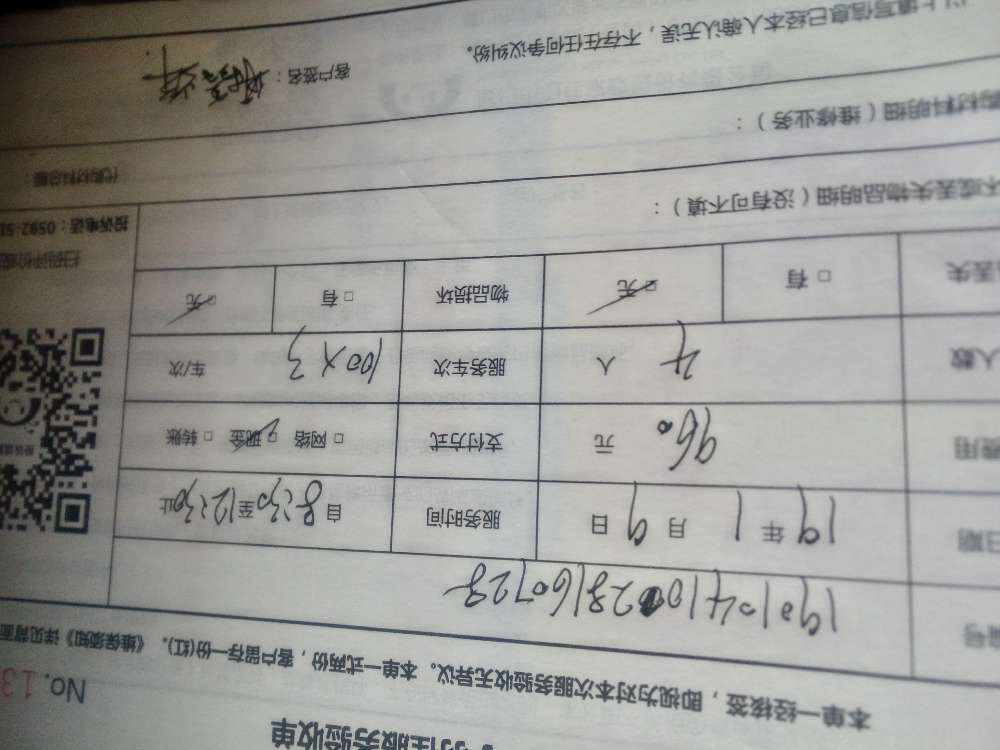 性服务验收单
No.13
本单一经核签，即视为对本次服务验收无异议。本单一式两份，客户留存一份(红)。《维保须知》详见背面
编号
日期 19年1月9日 服务时间 自8:30至12:30止
费用 960 元 支付方式 □ 网络 □ 现金 □ 转账
人数 4 人 服务车次 100×3 车/次
丢失 □ 有 □ 无 物品损坏 □ 有 □ 无
坏或丢失物品明细（没有可不填）：
扫码评价或
投诉电话：0592-51
购材料明细（维修业务）：
代购材料总额：
以上填写信息已经本人确认无误，不存在任何争议纠纷。
客户签名：